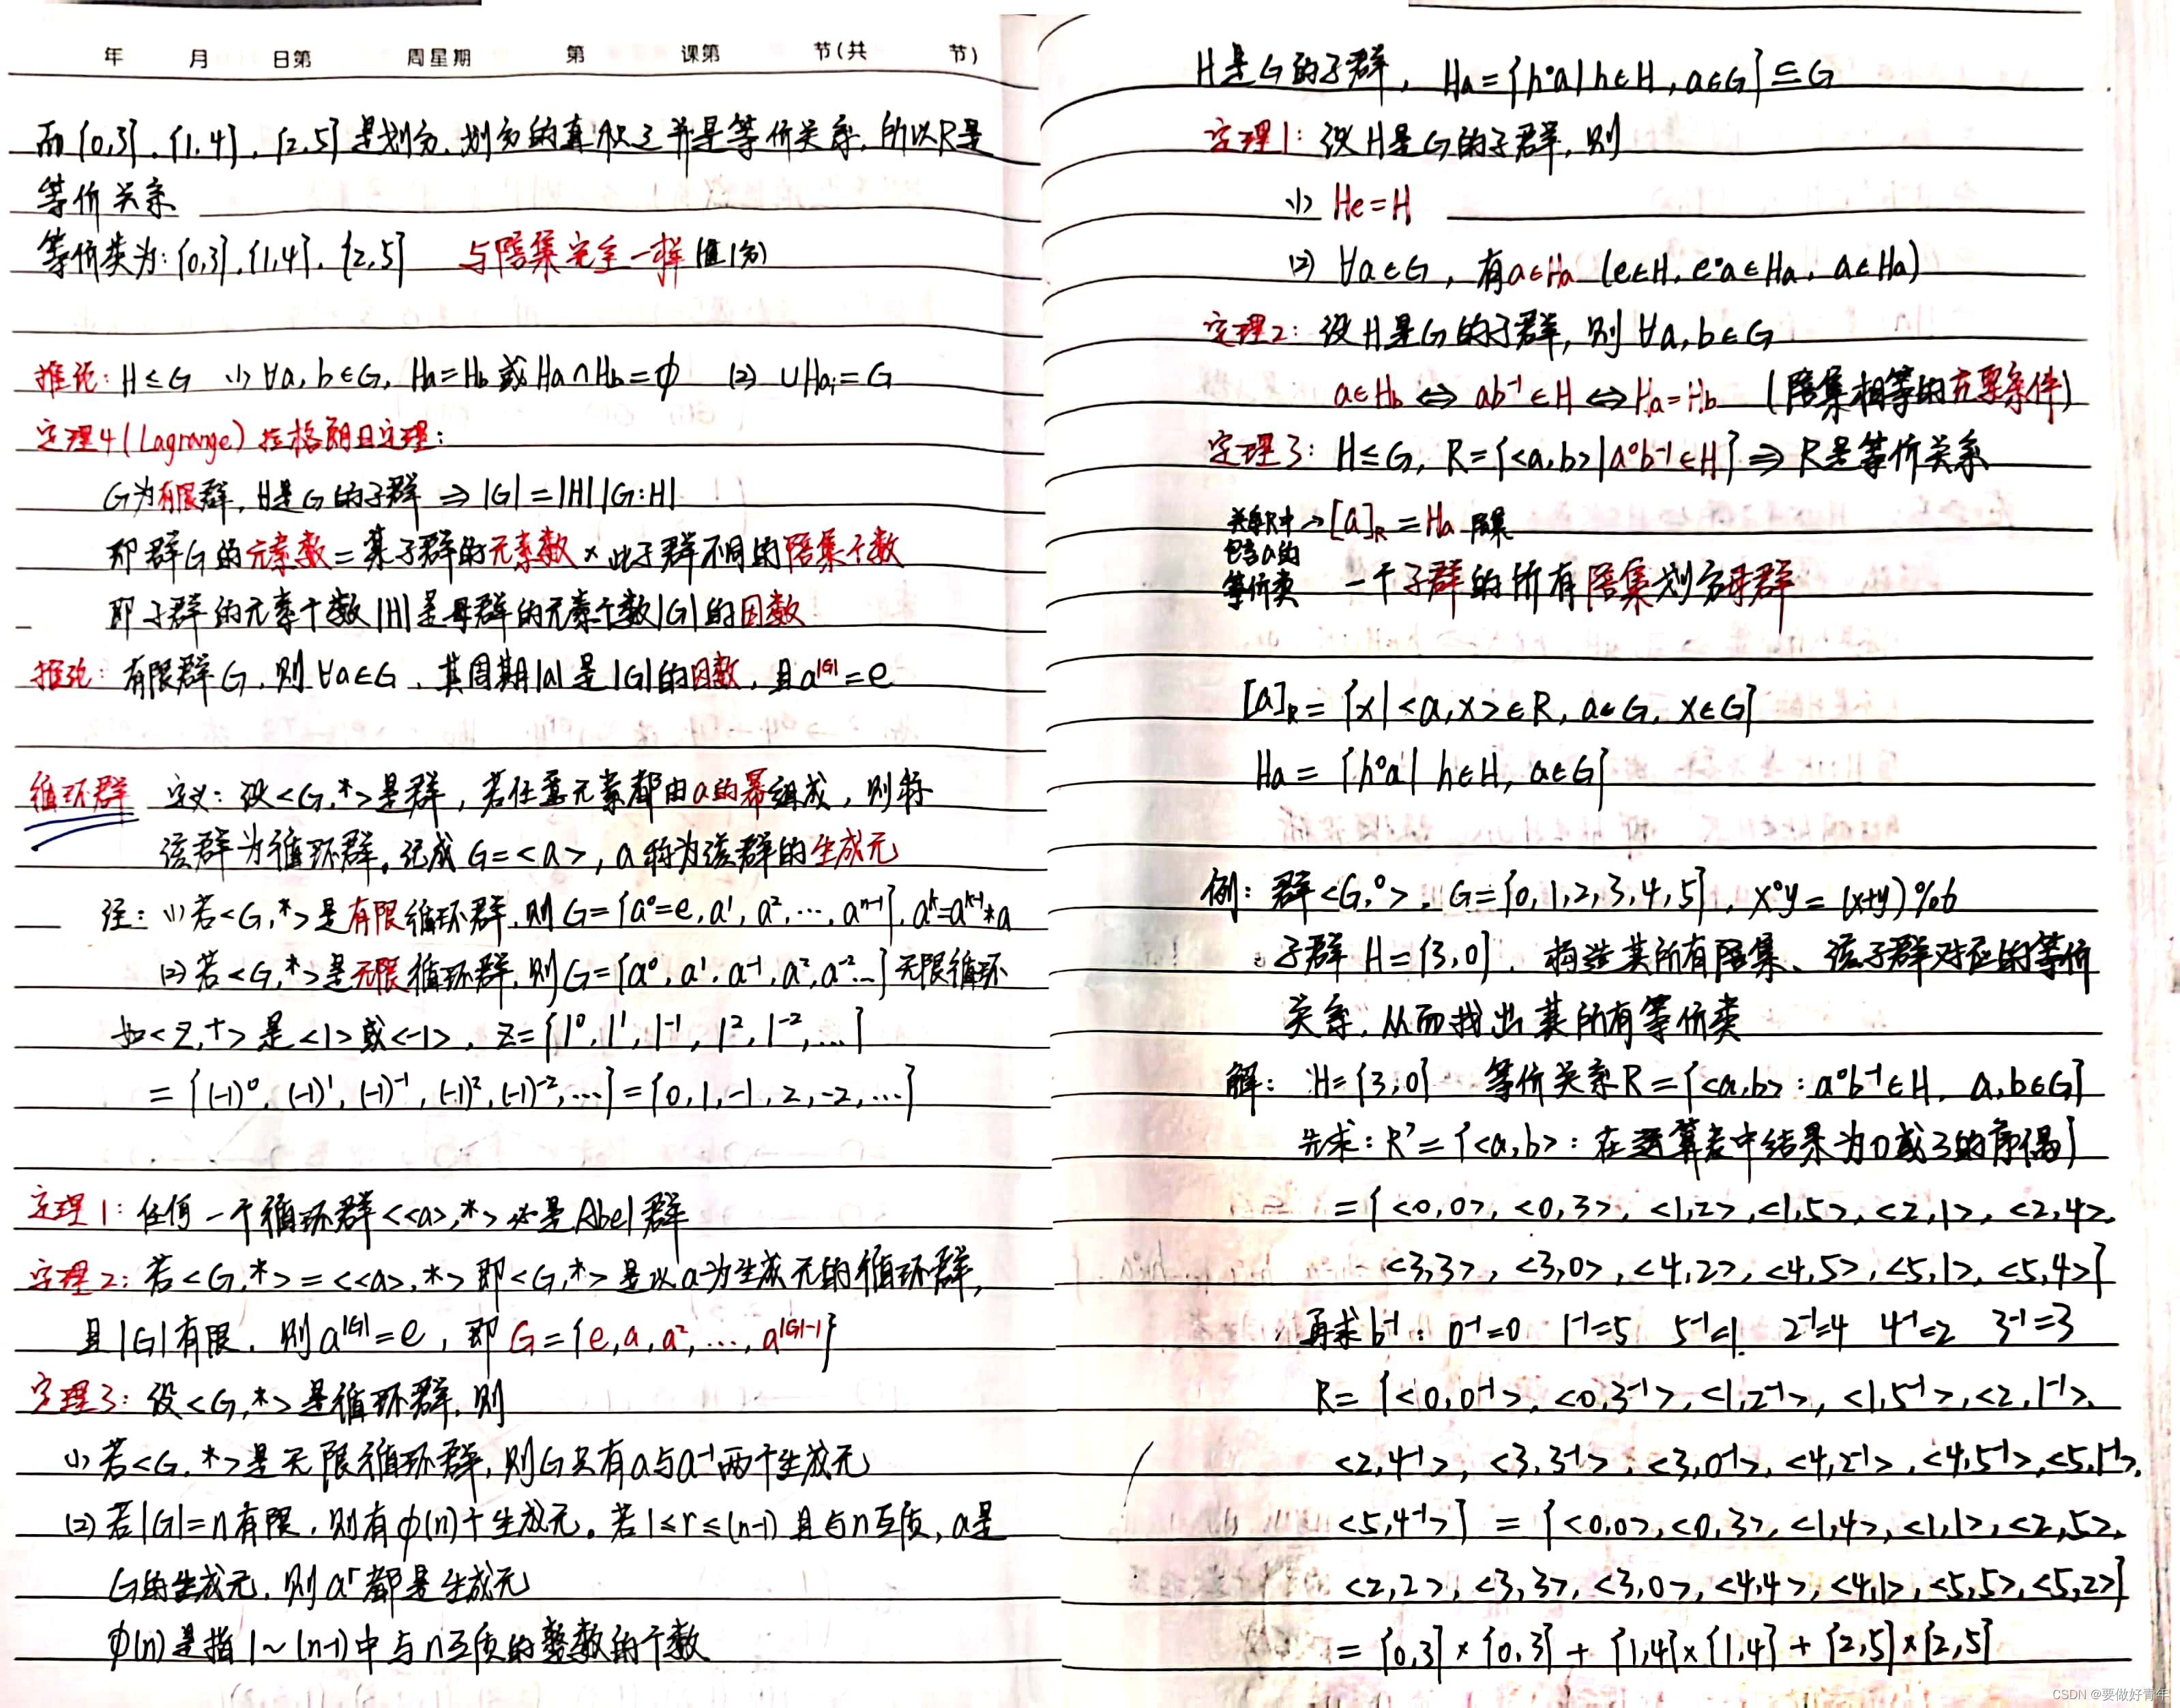 年 月 日第 周星期 第 课第 节(共 节)
而{0,3},{1,4},{2,5}是划分,划分的直积之并是等价关系,所以R是
等价关系
等价类为:{0,3},{1,4},{2,5} 与陪集完全一样
推论:H≤G (1) ∀a,b∈G, Ha=Hb或Ha∩Hb=φ (2) ∪Hai=G
定理4(Lagrange)拉格朗日定理:
G为有限群,H是G的子群 ⇒ |G|=|H||G:H|
即群G的元素数=其子群的元素数×此子群不同的陪集个数
即子群的元素个数|H|是母群的元素个数|G|的因数
推论:有限群G,则∀a∈G,其周期|a|是|G|的因数,且a^|G|=e
循环群 定义:设<G,*>是群,若任意元素都由a的幂组成,则称
该群为循环群。记成G=<a>,a称为该群的生成元
注:(1)若<G,*>是有限循环群,则G={a⁰=e,a¹,a²,…,aⁿ⁻¹},a^k=a^(k-1)*a
(2)若<G,*>是无限循环群,则G={a⁰,a¹,a⁻¹,a²,a⁻²…}无限循环
如<Z,+>是<1>或<-1>,Z={1⁰,1¹,1⁻¹,1²,1⁻²,…}
={(-1)⁰,(-1)¹,(-1)⁻¹,(-1)²,(-1)⁻²,…}={0,1,-1,2,-2,…}
定理1:任何一个循环群<<a>,*>必是Abel群
定理2:若<G,*>=<<a>,*>即<G,*>是以a为生成元的循环群,
且|G|有限,则a^|G|=e,即G={e,a,a²,…,a^(|G|-1)}
定理3:设<G,*>是循环群,则
(1)若<G,*>是无限循环群,则G只有a与a⁻¹两个生成元
(2)若|G|=n有限,则有φ(n)个生成元。若1≤r≤(n-1)且与n互质,a是
G的生成元,则aʳ都是生成元
φ(n)是指1~(n-1)中与n互质的整数的个数
H是G的子群,Ha={h∘a|h∈H,a∈G}⊆G
定理1:设H是G的子群,则
(1) He=H
(2) ∀a∈G,有a∈Ha (e∈H,e∘a∈Ha,a∈Ha)
定理2:设H是G的子群,则∀a,b∈G
a∈Hb ⇔ ab⁻¹∈H ⇔ Ha=Hb (陪集相等的充要条件)
定理3:H≤G,R={<a,b>|a∘b⁻¹∈H} ⇒ R是等价关系
关系R中→[a]R=Ha 陪集
包含a的
等价类 一个子群的所有陪集划分母群
[a]R={x|<a,x>∈R,a∈G,x∈G}
Ha={h∘a|h∈H,a∈G}
例:群<G,∘>,G={0,1,2,3,4,5},x∘y=(x+y)%6
子群H={3,0},构造其所有陪集、该子群对应的等价
关系,从而找出其所有等价类
解:H={3,0} 等价关系R={<a,b>:a∘b⁻¹∈H,a,b∈G}
先求:R'={<a,b>:在运算表中结果为0或3的序偶}
={<0,0>,<0,3>,<1,2>,<1,5>,<2,1>,<2,4>,
<3,3>,<3,0>,<4,2>,<4,5>,<5,1>,<5,4>}
再求b⁻¹:0⁻¹=0 1⁻¹=5 5⁻¹=1 2⁻¹=4 4⁻¹=2 3⁻¹=3
R={<0,0⁻¹>,<0,3⁻¹>,<1,2⁻¹>,<1,5⁻¹>,<2,1⁻¹>,
<2,4⁻¹>,<3,3⁻¹>,<3,0⁻¹>,<4,2⁻¹>,<4,5⁻¹>,<5,1⁻¹>,
<5,4⁻¹>}={<0,0>,<0,3>,<1,4>,<1,1>,<2,5>,
<2,2>,<3,3>,<3,0>,<4,4>,<4,1>,<5,5>,<5,2>}
={0,3}×{0,3}+{1,4}×{1,4}+{2,5}×{2,5}
CSDN @要做好青年